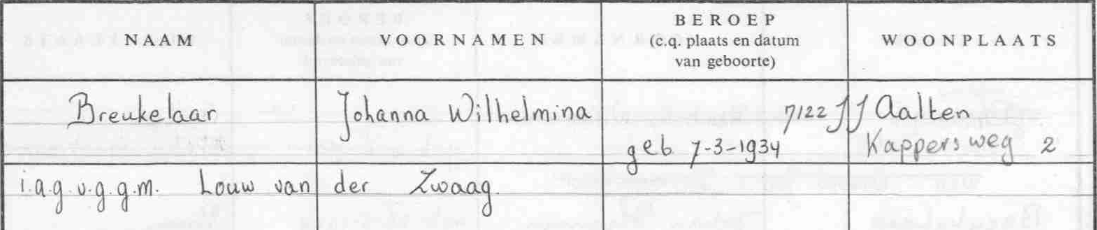 NAAM VOORNAMEN BEROEP (c.q. plaats en datum van geboorte) WOONPLAATS
Breukelaar Johanna Wilhelmina 7122 JJ Aalten
geb 7-3-1934 Kappersweg 2
i.a.g.v.g.g.m. Louw van der Zwaag